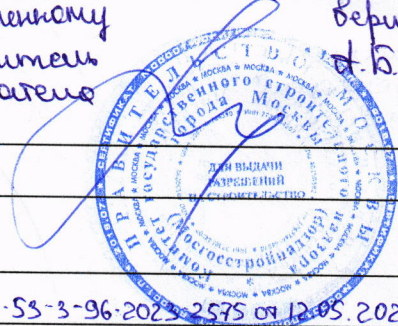 ченному вери
итель А.Б.
ателя
ПРАВИТЕЛЬСТВО МОСКВЫ
Комитет государственного строительного надзора города Москвы
(Мосгосстройнадзор)
ДЛЯ ВЫДАЧИ
РАЗРЕШЕНИЙ
НА СТРОИТЕЛЬСТВО
-53-3-96-2023-2575 от 12.05.202